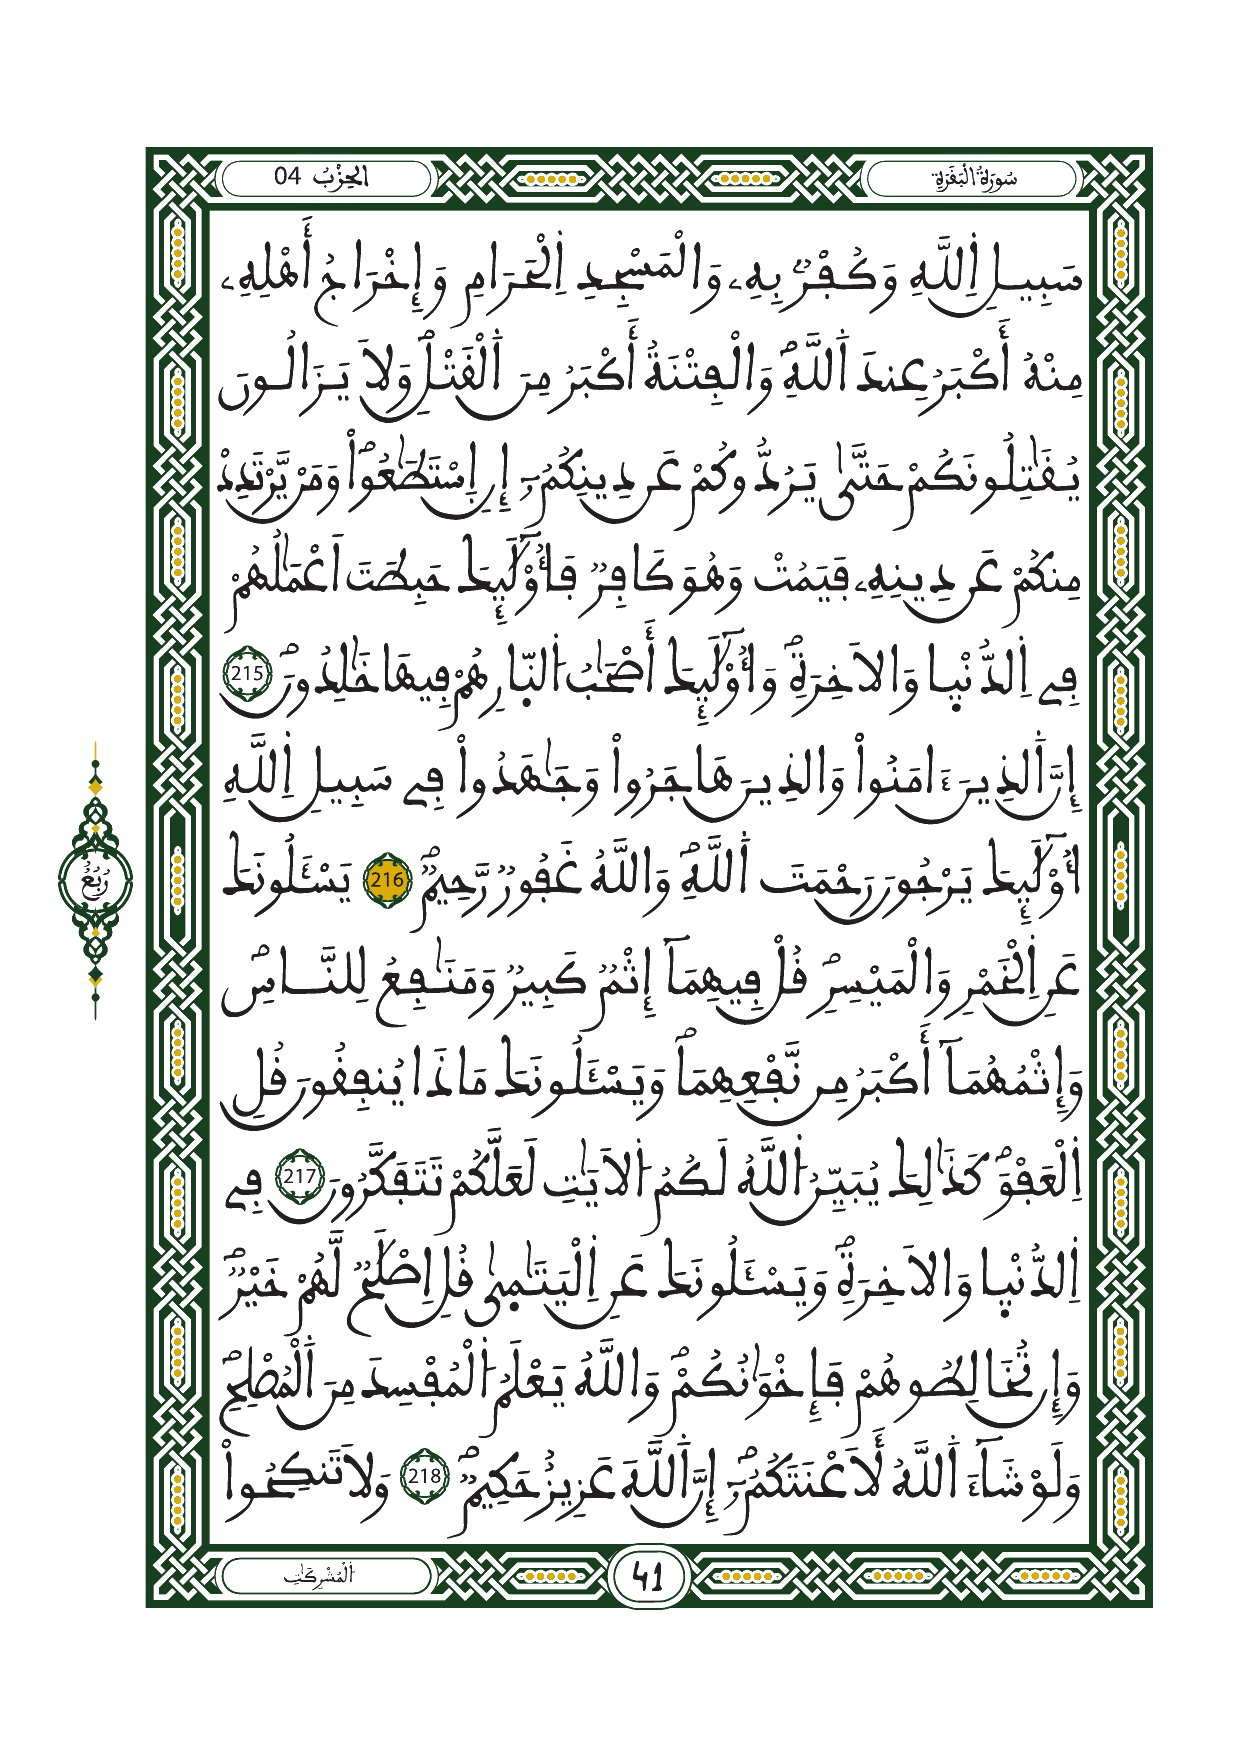 سُورَةُ الْبَقَرَةِ
الحِزْبُ 04
سَبِيلِ اِ۬للَّهِ وَكُفْرُۢ بِهِۦ وَالْمَسْجِدِ اِ۬لْحَرَامِ وَإِخْرَاجُ أَهْلِهِۦ
مِنْهُ أَكْبَرُ عِندَ اَ۬للَّهِۖ وَالْفِتْنَةُ أَكْبَرُ مِنَ اَ۬لْقَتْلِۖ وَلَا يَزَالُونَ
يُقَٰتِلُونَكُمْ حَتَّىٰ يَرُدُّوكُمْ عَن دِينِكُمُۥٓ إِنِ اِ۪سْتَطَٰعُواْۖ وَمَنْ يَّرْتَدِدْ
مِنكُمْ عَن دِينِهِۦ فَيَمُتْ وَهُوَ كَافِرٞ فَأُوْلَٰٓئِكَ حَبِطَتَ اَعْمَٰلُهُمْ
فِے اِ۬لدُّنْي۪ا وَالَاخِرَةِۖ وَأُوْلَٰٓئِكَ أَصْحَٰبُ اُ۬لنّ۪ارِ هُمْ فِيهَا خَٰلِدُونَۖ 215
إِنَّ اَ۬لذِينَ ءَامَنُواْ وَالذِينَ هَاجَرُواْ وَجَٰهَدُواْ فِے سَبِيلِ اِ۬للَّهِ
أُوْلَٰٓئِكَ يَرْجُونَ رَحْمَتَ اَ۬للَّهِۖ وَاللَّهُ غَفُورٞ رَّحِيمٞۖ 216 يَسْـَٔلُونَكَ
رُبُعُ
عَنِ اِ۬لْخَمْرِ وَالْمَيْسِرِۖ قُلْ فِيهِمَآ إِثْمٞ كَبِيرٞ وَمَنَٰفِعُ لِلنَّاسِۖ
وَإِثْمُهُمَآ أَكْبَرُ مِن نَّفْعِهِمَاۖ وَيَسْـَٔلُونَكَ مَاذَا يُنفِقُونَ قُلِ
اِ۬لْعَفْوَۖ كَذَٰلِكَ يُبَيِّنُ اُ۬للَّهُ لَكُمُ اُ۬لَايَٰتِ لَعَلَّكُمْ تَتَفَكَّرُونَ 217 فِے
اِ۬لدُّنْي۪ا وَالَاخِرَةِۖ وَيَسْـَٔلُونَكَ عَنِ اِ۬لْيَتَٰم۪ىٰ قُلِ اِصْلَٰحٞ لَّهُمْ خَيْرٞۖ
وَإِن تُخَالِطُوهُمْ فَإِخْوَٰنُكُمْۖ وَاللَّهُ يَعْلَمُ اُ۬لْمُفْسِدَ مِنَ اَ۬لْمُصْلِحِۖ
وَلَوْ شَآءَ اَ۬للَّهُ لَأَعْنَتَكُمُۥٓۖ إِنَّ اَ۬للَّهَ عَزِيزٌ حَكِيمٞۖ 218 وَلَا تَنكِحُواْ
اُ۬لْمُشْرِكَٰتِ
41